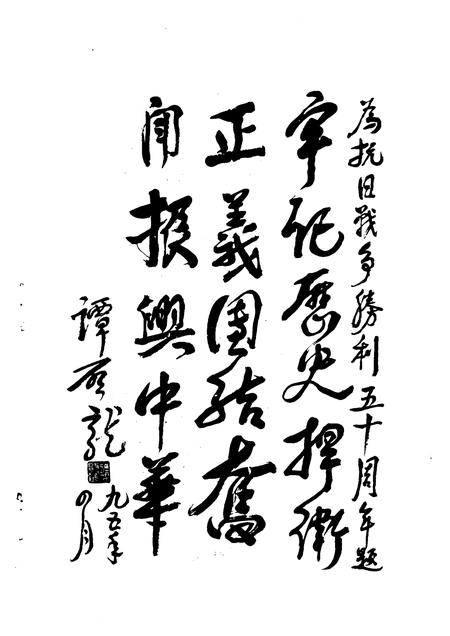 為抗日戰争勝利五十周年題
牢記歷史捍衛
正義團結奮
鬥振興中華
譚启龍
九五年
四月